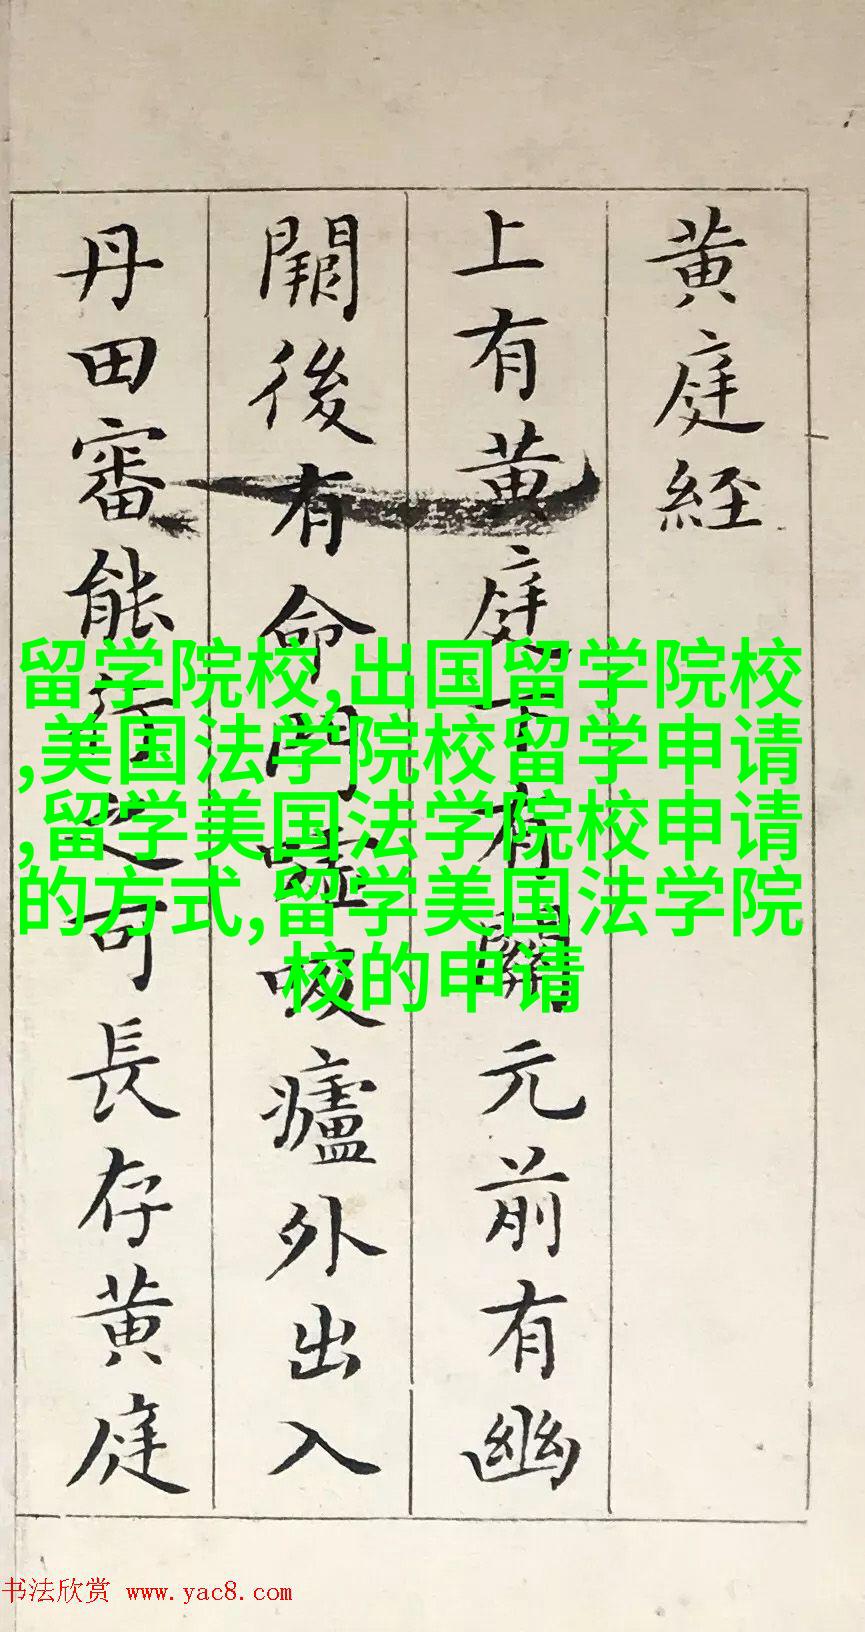 黄庭経
上有黄庭下有關元前有幽
闕後有命門噓吸廬外出入
丹田審能行之可長存黄庭
留学院校,出国留学院校
,美国法学院校留学申请
,留学美国法学院校申请
的方式,留学美国法学院
校的申请
书法欣赏 www.yac8.com